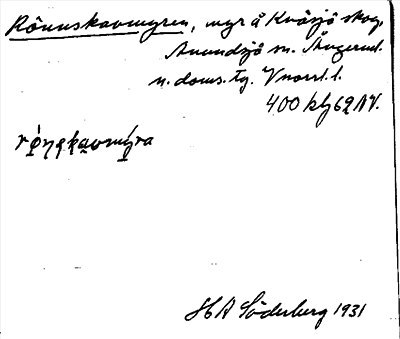 Rönnskavmyren, myr å Kvarsjö skog,
Anundsjö sn. Ångerml.
n. doms. tg. Vnorrl. l.
400 kbl 62 NV.
HA Söderberg 1931